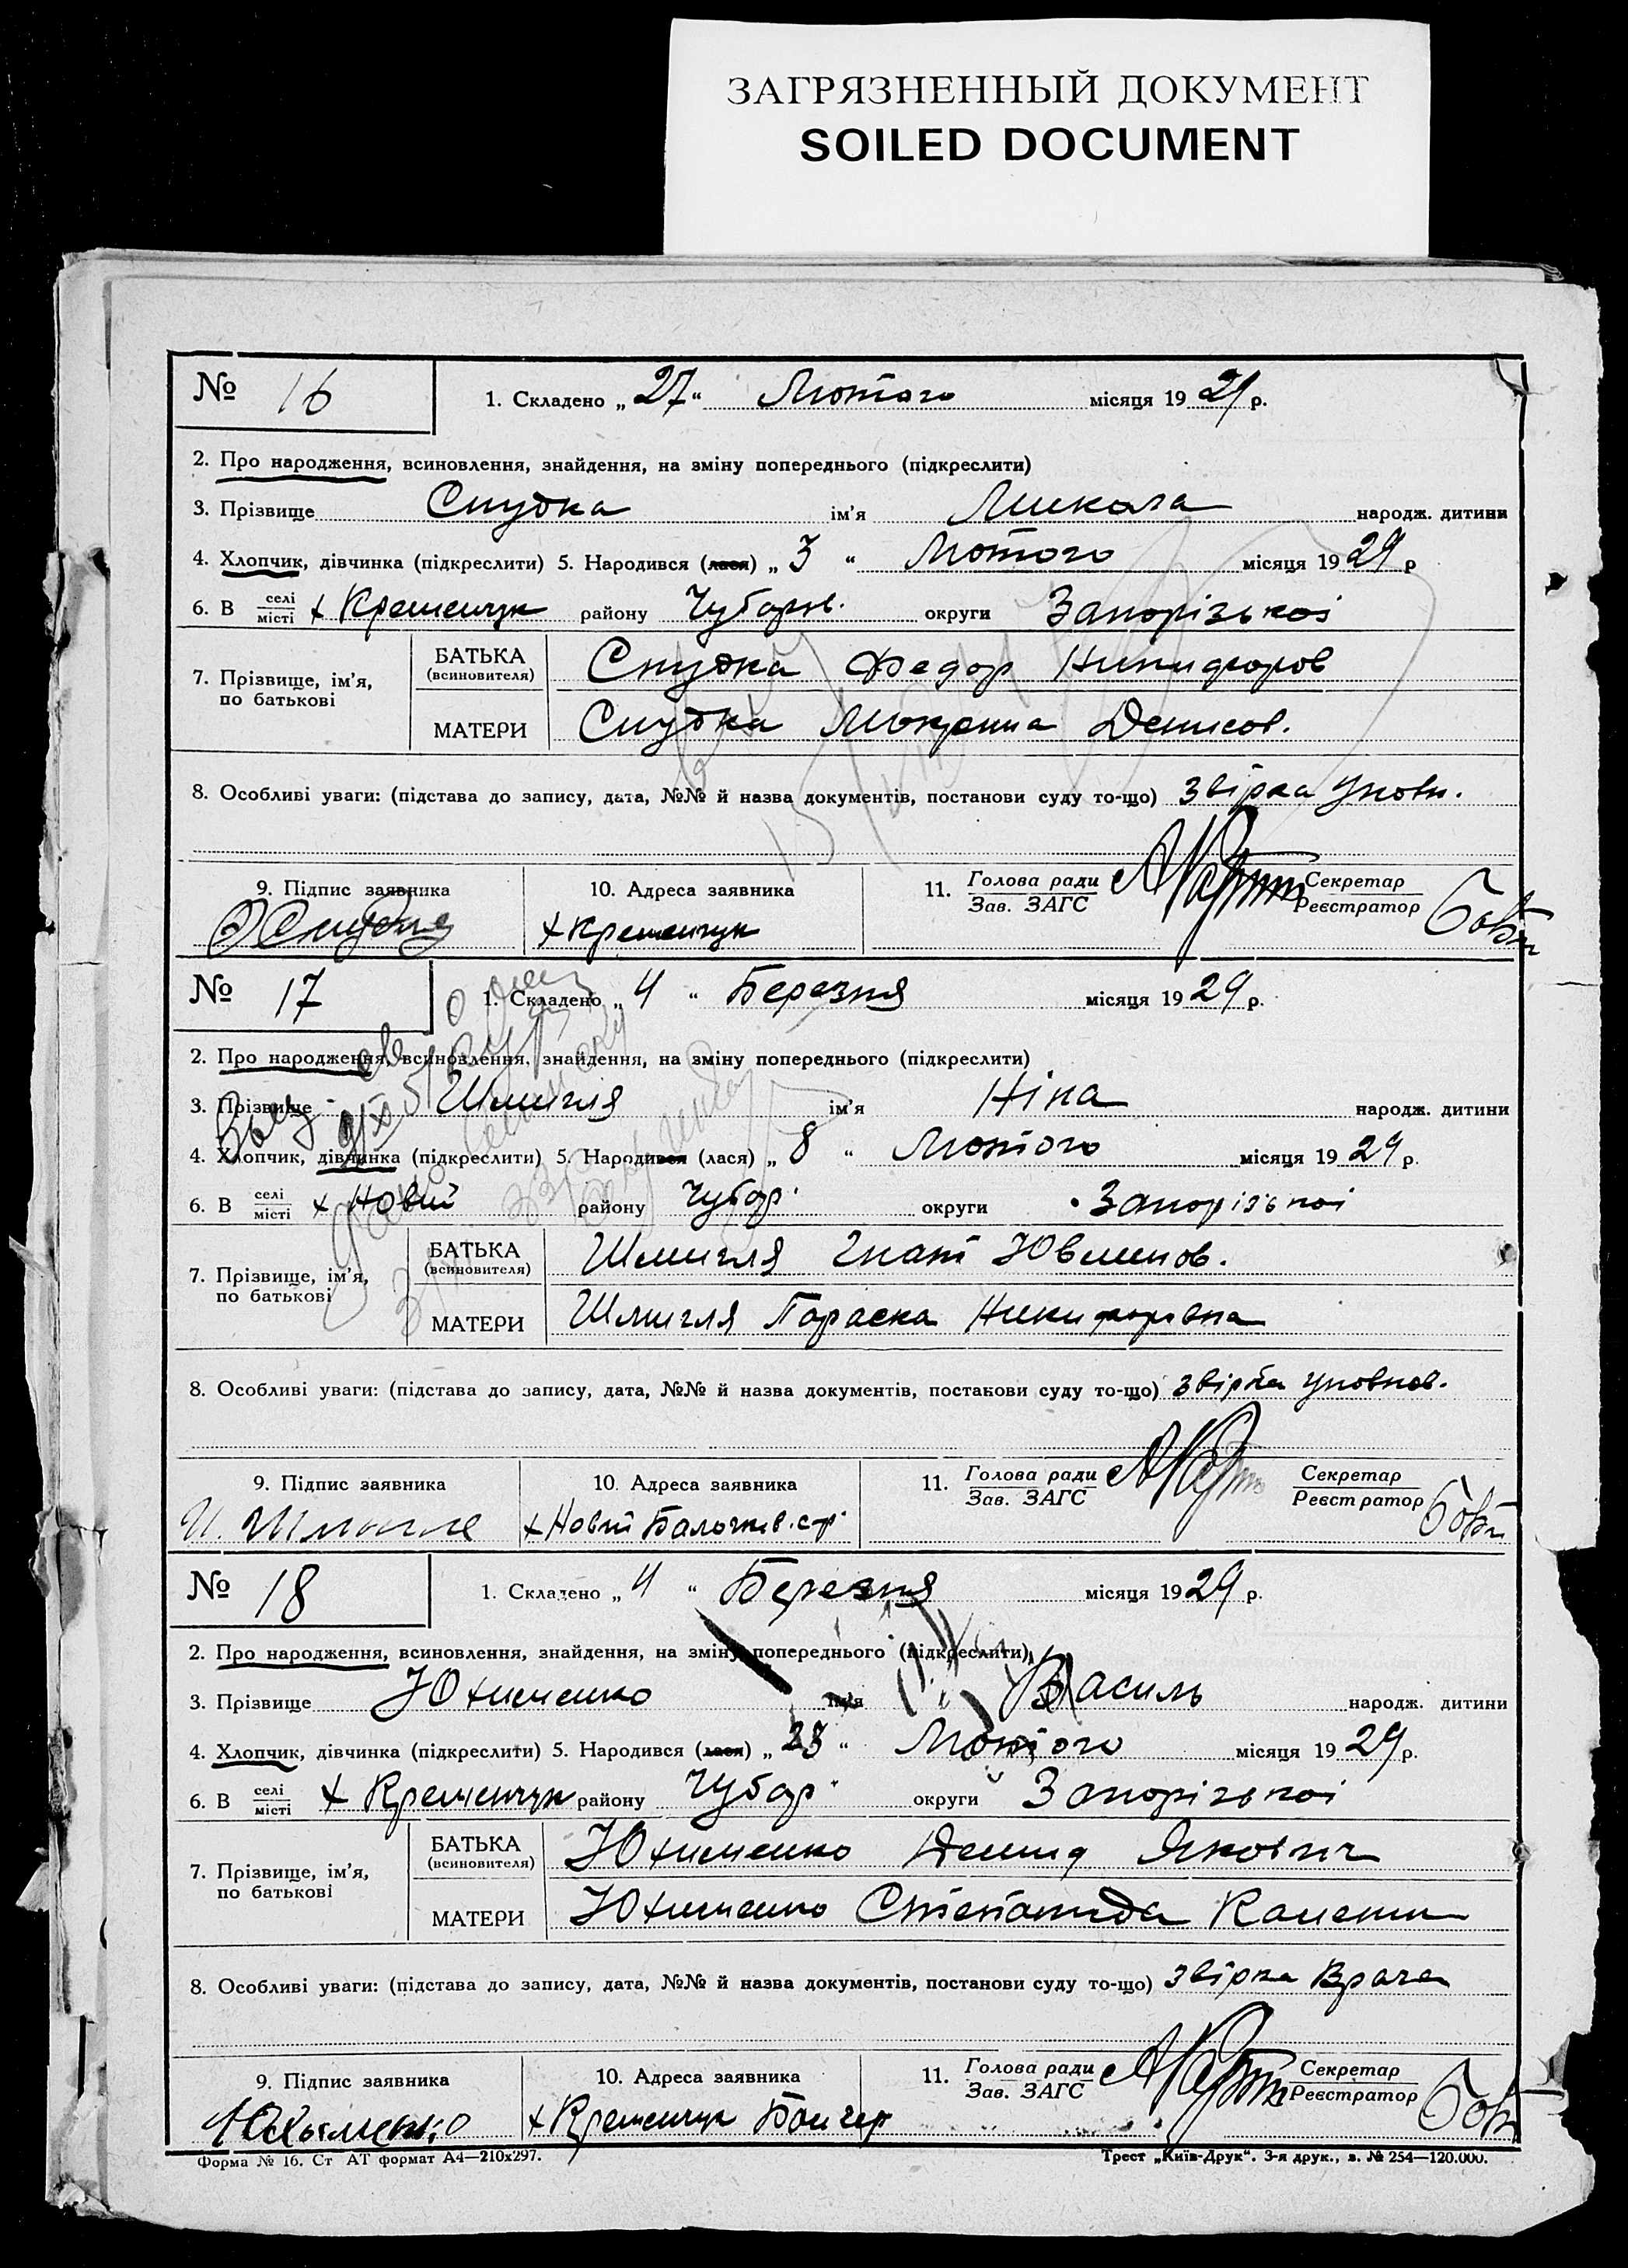 ЗАГРЯЗНЕННЫЙ ДОКУМЕНТ
SOILED DOCUMENT
№ 16
1. Складено „27“ Лютого місяця 1929 р.
2. Про народження, всиновлення, знайдення, на зміну попереднього (підкреслити)
3. Прізвище Снудка ім'я Микола народж. дитини
4. Хлопчик, дівчинка (підкреслити) 5. Народився (лася) „3“ Лютого місяця 1929 р
6. В селі місті х Кременчук району Чубарів. округи Запорізької
7. Прізвище, ім'я, по батькові
БАТЬКА (всиновителя) Снудка Федор Никифоров
МАТЕРИ Снудка Мокрина Денисов.
8. Особливі уваги: (підстава до запису, дата, №№ й назва документів, постанови суду то-що) звірка уповн.
9. Підпис заявника
10. Адреса заявника
11. Голова ради Зав. ЗАГС Секретар Реєстратор
х Кременчук
№ 17
1. Складено „4“ Березня місяця 1929 р.
2. Про народження, всиновлення, знайдення, на зміну попереднього (підкреслити)
3. Прізвище Шмигля ім'я Ніна народж. дитини
4. Хлопчик, дівчинка (підкреслити) 5. Народився (лася) „8“ Лютого місяця 1929 р.
6. В селі місті х Новий району Чубар. округи Запорізької
7. Прізвище, ім'я, по батькові
БАТЬКА (всиновителя) Шмигля Гнат
МАТЕРИ Шмигля Параска Никифорівна
8. Особливі уваги: (підстава до запису, дата, №№ й назва документів, постанови суду то-що) звірка уповнов.
9. Підпис заявника
10. Адреса заявника
11. Голова ради Зав. ЗАГС Секретар Реєстратор
х Новий
№ 18
1. Складено „4“ Березня місяця 1929 р.
2. Про народження, всиновлення, знайдення, на зміну попереднього (підкреслити)
3. Прізвище Юхименко ім'я Василь народж. дитини
4. Хлопчик, дівчинка (підкреслити) 5. Народився (лася) „23“ Лютого місяця 1929 р.
6. В селі місті х Кременчук району Чубар. округи Запорізької
7. Прізвище, ім'я, по батькові
БАТЬКА (всиновителя) Юхименко Демид Якович
МАТЕРИ Юхименко Степанида
8. Особливі уваги: (підстава до запису, дата, №№ й назва документів, постанови суду то-що) звірка Врача
9. Підпис заявника
10. Адреса заявника
11. Голова ради Зав. ЗАГС Секретар Реєстратор
Юхыменко х Кременчук
Форма № 16. Ст АТ формат А4—210х297.
Трест „Київ-Друк“. 3-я друк., з. № 254—120.000.